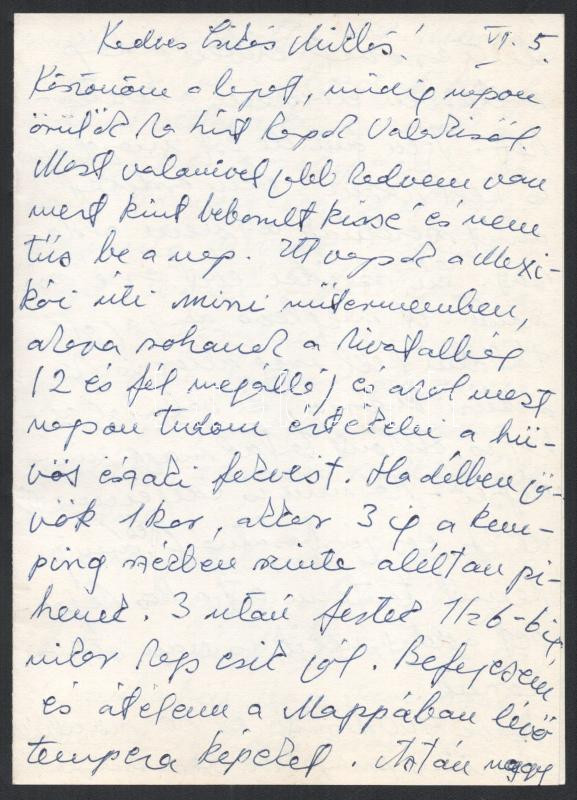 Kedves Csikós Miklós! VI. 5.
Köszönöm a lapot, mindig nagyon
örülök ha hírt kapok Valakiről.
Most valamivel jobb kedvem van
mert kint beborult kissé és nem
tűz be a nap. Itt vagyok a Mexi-
kói úti mini műtermemben,
ahova rohanok a hivatalból
(2 és fél megálló) és ahol most
nagyon tudom értékelni a hű-
vös északi fekvést. Ha délben jö-
vök 1kor, akkor 3 ig a kem-
ping székben szinte aléltan pi-
henek. 3 után festek 1/2 6-6 ig,
mikor hogy esik jól. Befejezem
és átélem a Mappában lévő
tempera képeket. Aztán nagy